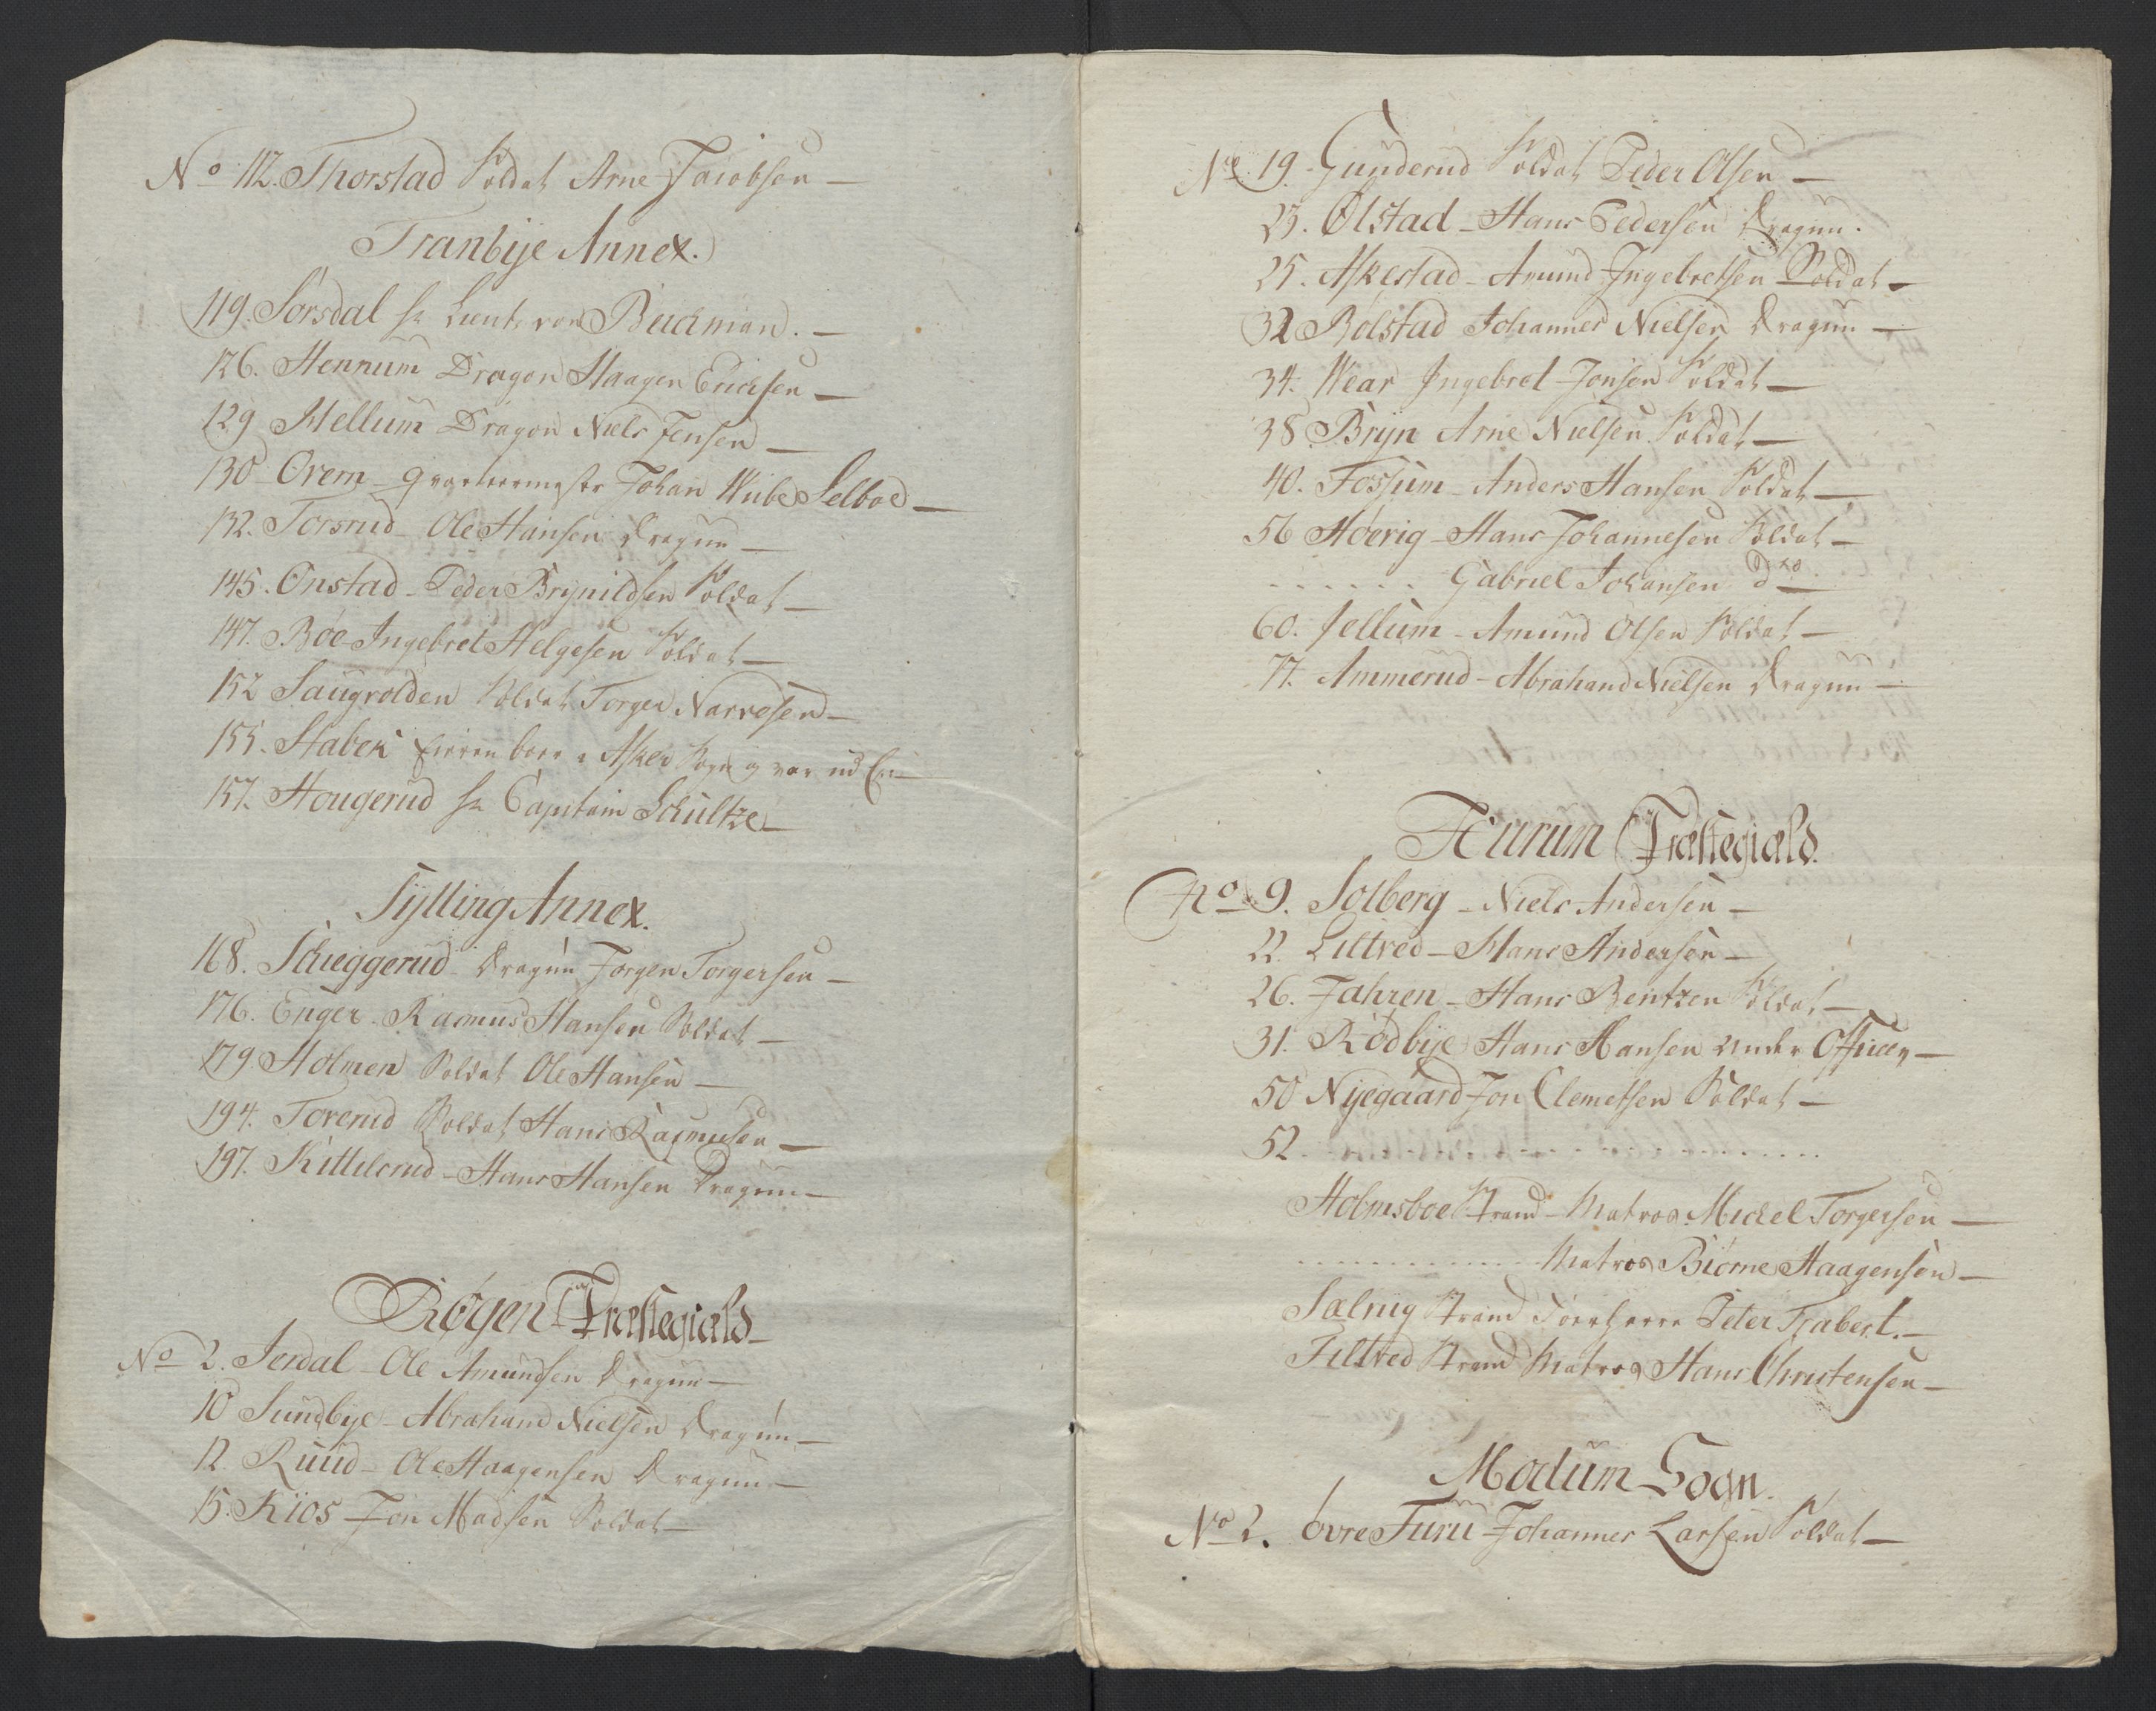 No 112. Thorstad Soldat Arne Jacobsen —
Tranbÿe Annex.
119. Sørsdal Hr Lieut: von Bachman. —
126. Hennum Dragon Haagen Erichsen —
129 Mellum Dragon Niels Jensen —
130 Overn Qvarteermestr Johan Wibe Selboe —
132. Torsrud - Ole Hansen Dragun —
145. Onstad - Peder Brÿnildsen Soldat —
147. Bøe - Ingebret Helgesen Soldat —
152 Saugvolden Soldat Torger Narvesen —
155. Stabek boer i Asker Sogn og var
157. Hougerud Hr Capitain Schultze —
Sÿlling Annex.
168. Scheggerud - Dragun Jørgen Torgersen —
176. Enger - Rasmus Hansen Soldat —
179 Holmen Soldat Ole Hansen —
194. Toverud Soldat Hans Rasmusen —
197. Kittilsrud - Hans Hansen Dragun —
Røgen Præstegiæld —
No 2. Jerdal - Ole Amundsen Dragun —
10 Sundbÿe - Abraham Nielsen Dragun —
12. Ruud - Ole Haagensen Dragun —
15. Kios - Jon Madsen Soldat —
No 19. Gunderud Soldat Peder Olsen —
23. Ølstad - Hans Pedersen Dragun.
25. Askestad - Amund Ingebretsen Soldat —
32 Bølstad Johannes Nielsen Dragun —
34. Wear Ingebret Jonsen Soldat —
38 Brÿn Arne Nielsen Soldat —
40. Fossum - Anders Hansen Soldat —
56 Høvrig - Hans Johannesen Soldat —
. . . . . . Gabriel Johansen dto —
60. Jellum - Amund Olsen Soldat —
77. Ammerud - Abraham Nielsen Dragun —
Hurum Præstegiæld.
No 9. Solberg - Niels Andersen —
22. Hans Andersen —
26. Jahren - Hans Bentzen Soldat —
31. Rødbÿe Hans Hansen Under Officer —
50 Nÿegaard Jon Clemetsen Soldat —
52 . . . . . . . . . . . . . . . .
Holmsboe Strand - Matros Michel Torgersen —
. . . . . . . . . . . . Matros Biørne Haagensen —
Strand Peter Trabert. —
Filtved Strand Matros Hans Christensen —
Modum Sogn.
No 2. Øvre Furu - Johannes Larsen Soldat —